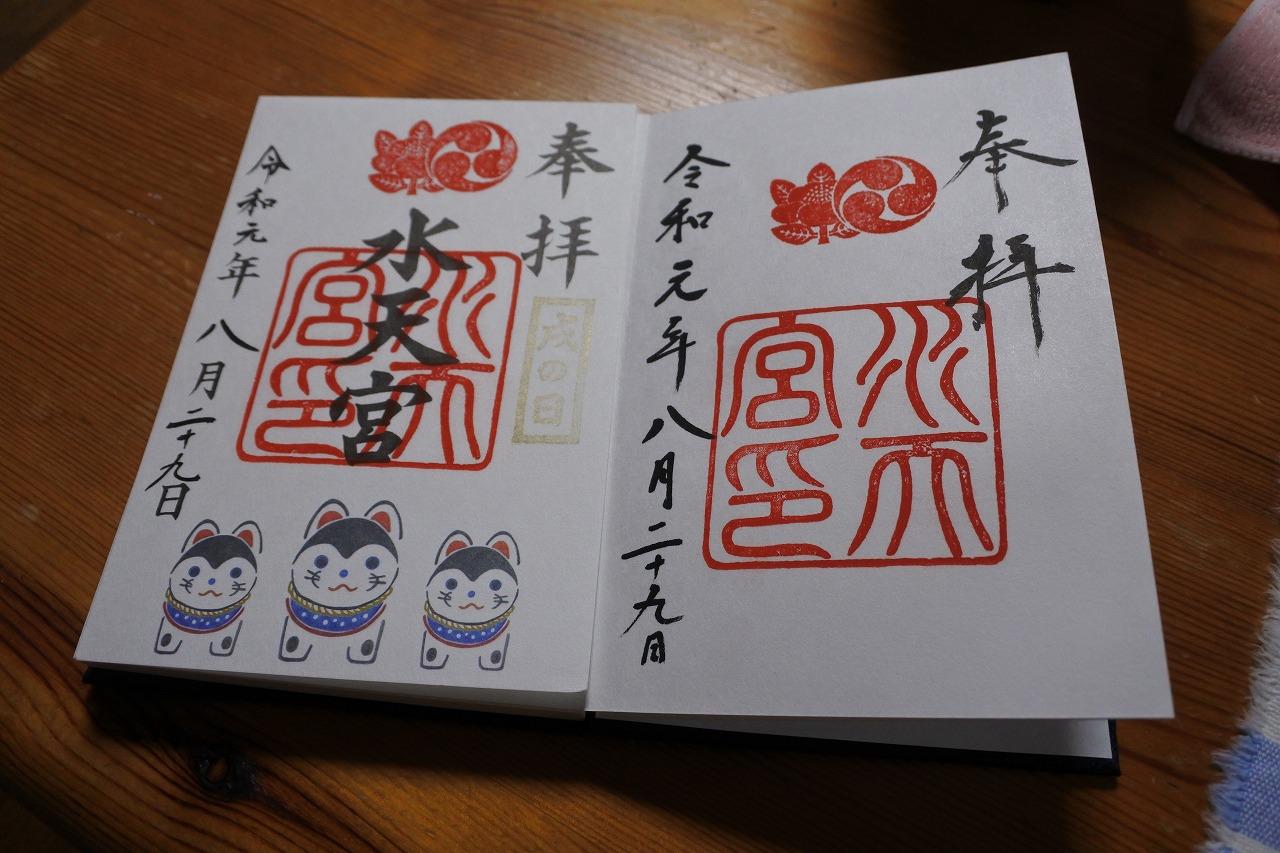 奉拝
水天宮印
令和元年八月二十九日
奉拝
戌の日
水天宮
水天宮印
令和元年八月二十九日